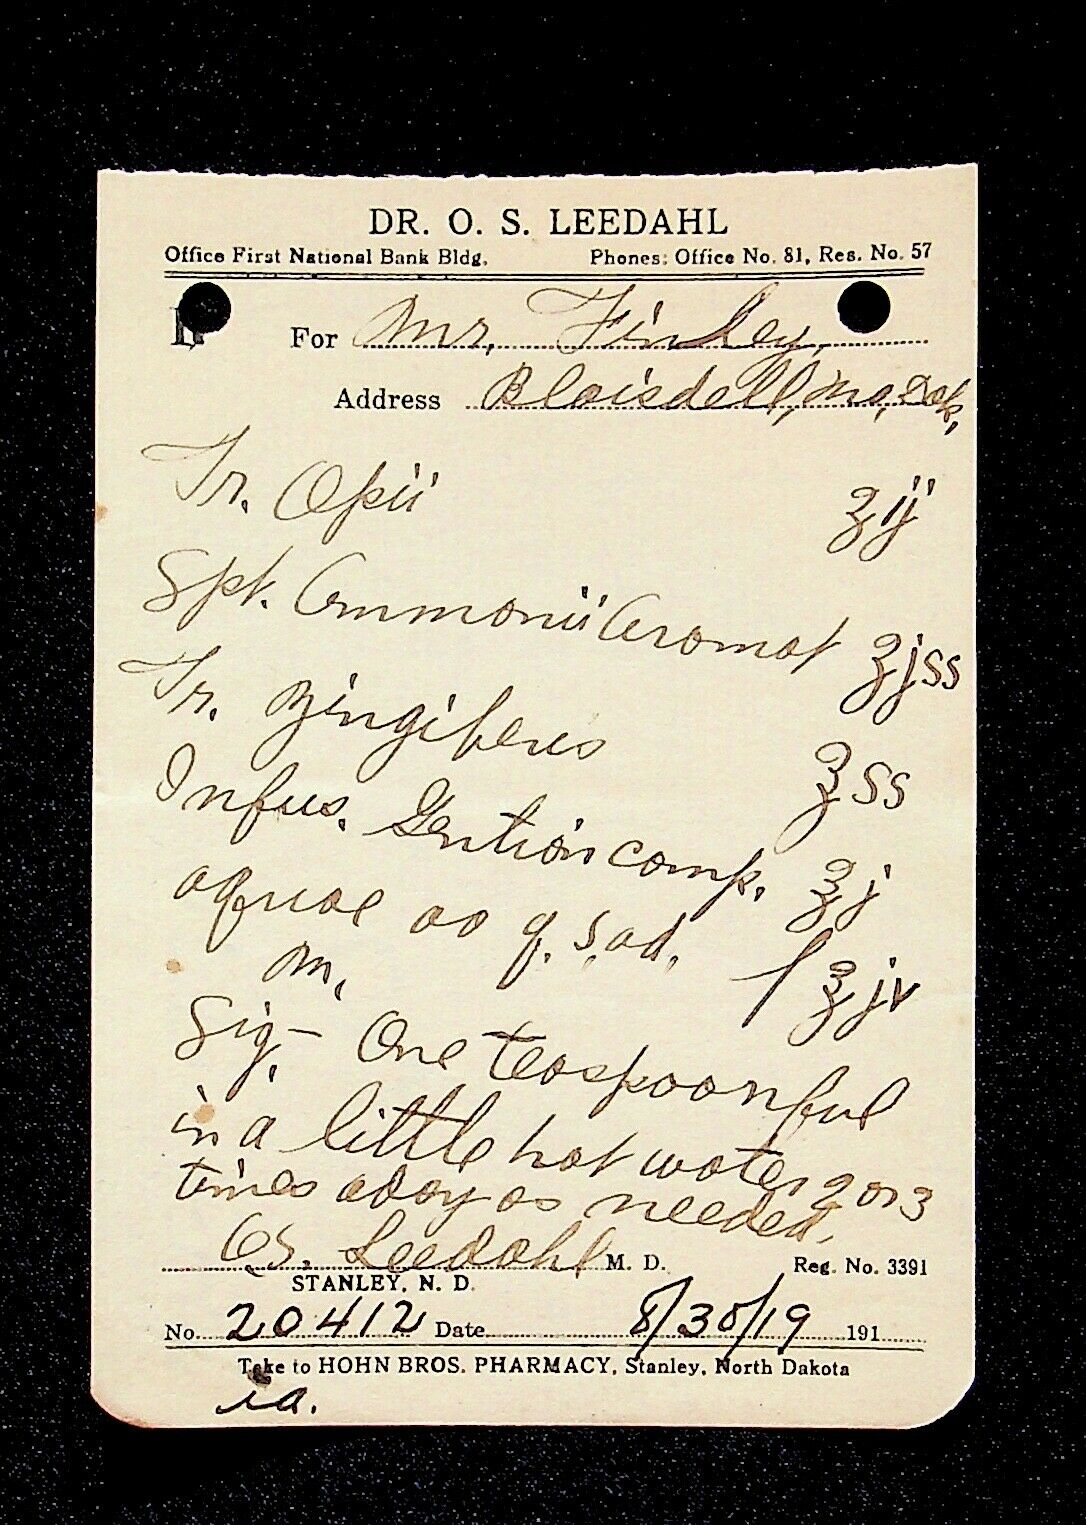 DR. O. S. LEEDAHL
Office First National Bank Bldg. Phones: Office No. 81, Res. No. 57
For Mr. Finley,
Address Blaisdell, No, Dak,
Tr. Opii ʒij
Spt. Ammonii Aromat ʒjss
Tr. Zingiberis ʒss
Infus. Gentian comp. ℥j
aquae aa q. s. ad. f ℥jv
M.
Sig.- One teaspoonful
in a little hot water 2 or 3
times aday as needed.
OS. Leedahl M. D. Reg. No. 3391
STANLEY, N. D.
No. 20412 Date 8/30/19 191
Take to HOHN BROS. PHARMACY, Stanley, North Dakota